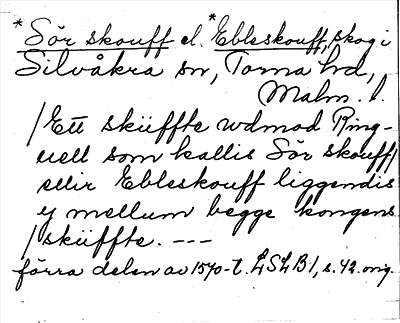 *Sör skouff el. *Ebleskouff, skog i
Silvåkra sn, Torna hd,
Malm. l.
/Ett sküffte wdmod Ring-
uell som kallis Sör skouff/
ellir Ebleskouff liggendis
y mellum begge kongens
/skiiffte. ---
förra delen av 1570-t. LSLB1, s. 42. orig.